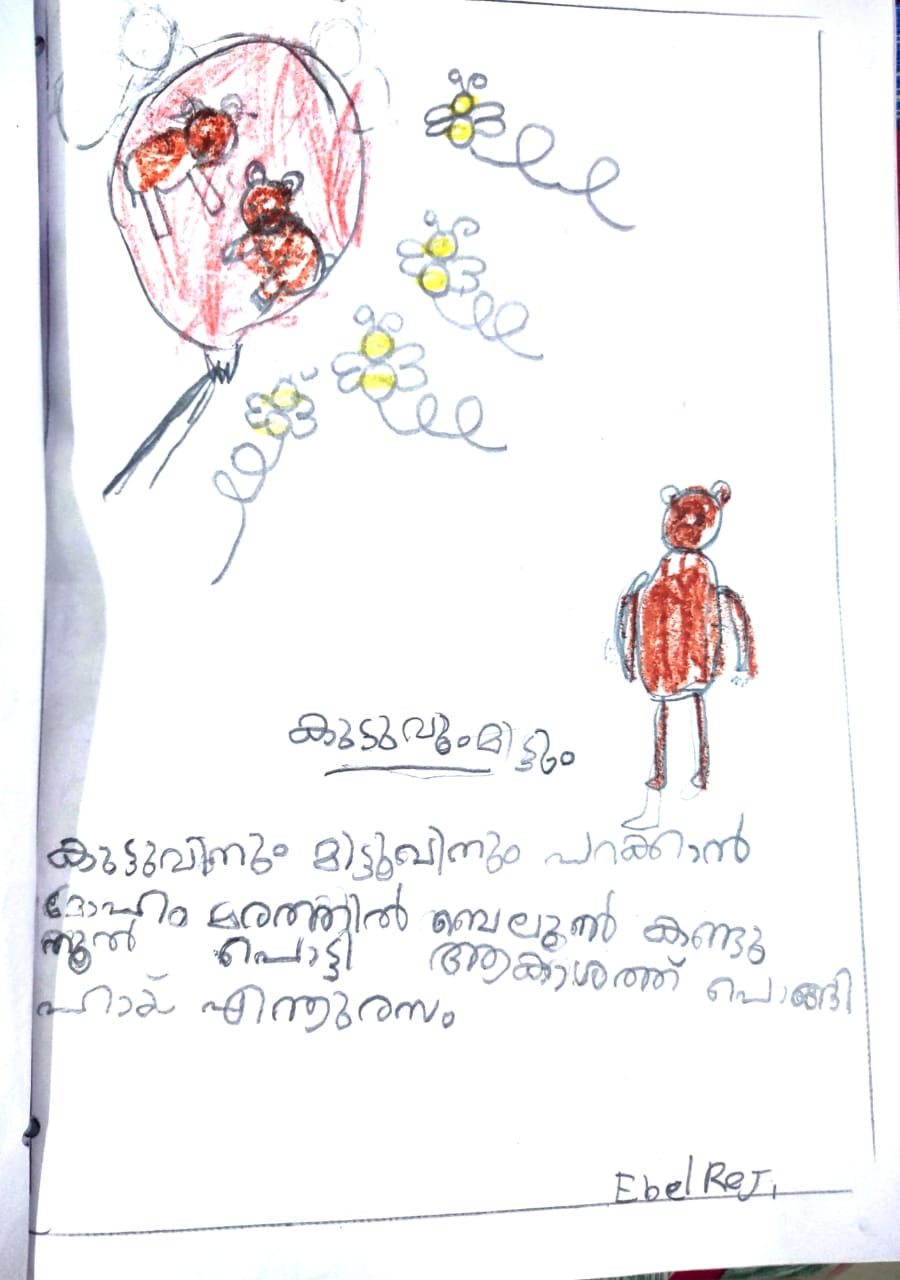 കുട്ടുവുംമിട്ടും
കുട്ടുവിനും മിട്ടുവിനും പറക്കാൻ
മോഹം മരത്തിൽ ബെലൂൺ കണ്ടു
നൂൽ പൊട്ടി ആകാശത്ത് പൊങ്ങി
ഹായ് എന്തുരസം
Ebel Reji